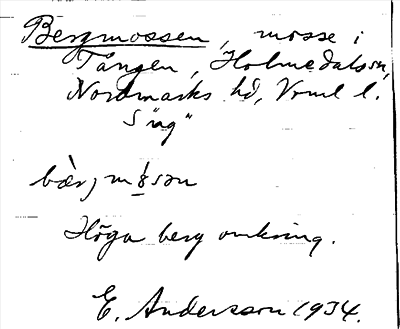 Bergmossen, mosse i
Tången, Holmedals sn,
Nordmarks hd, Vrml l.
S "äg"
bær, møsan
Höga berg omkring.
E. Andersson 1934.